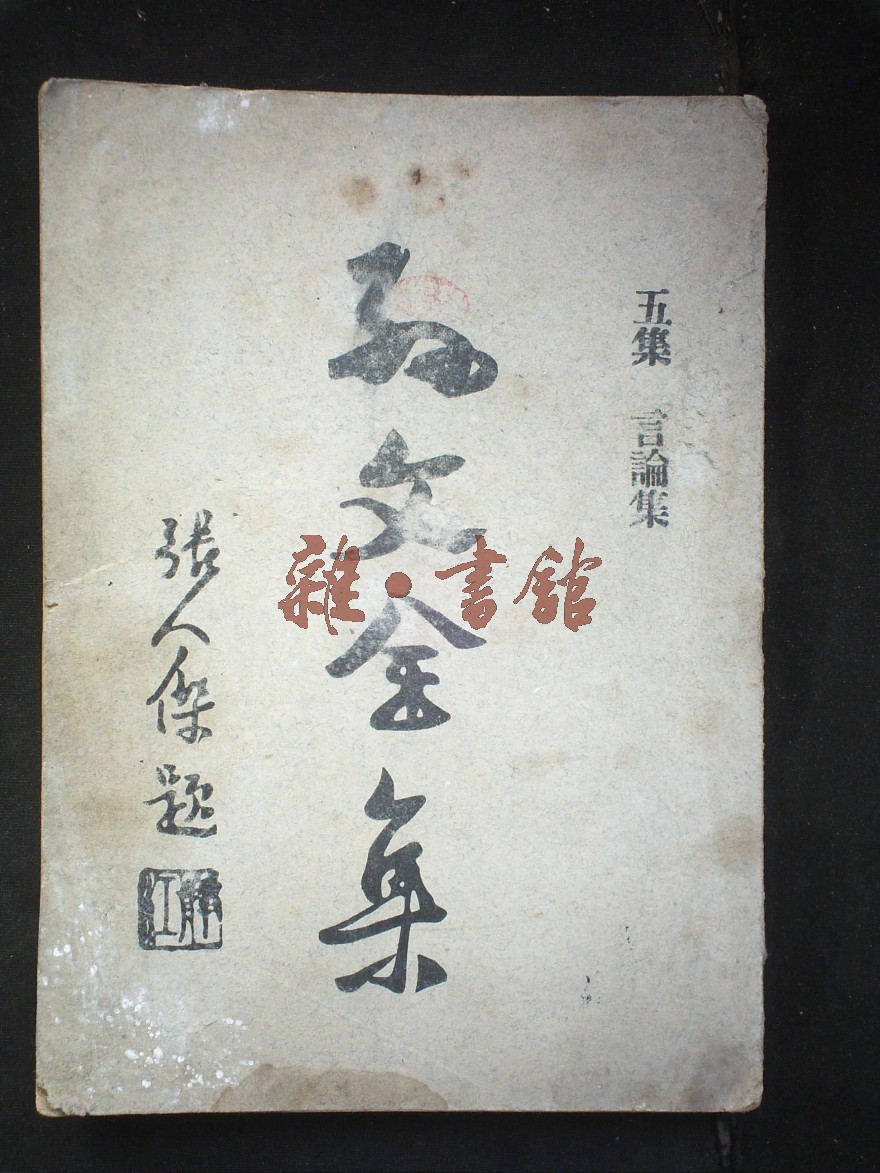 五集 言論集
孫文全集
張人傑題
靜江
雜·書館